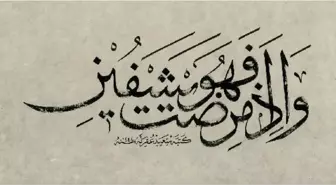 وَاِذَا مَرِضْتُ فَهُوَ يَشْفِينِ
كتبه